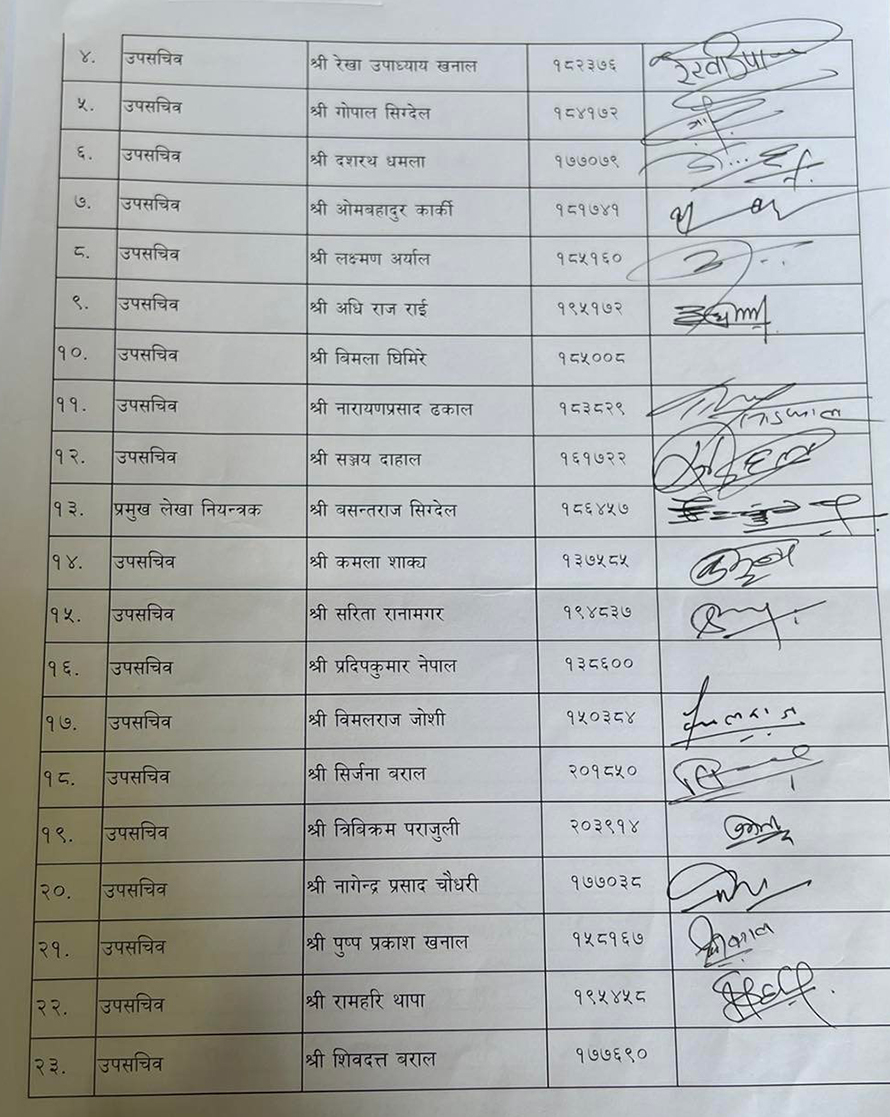 ४. उपसचिव श्री रेखा उपाध्याय खनाल १८२३७६
५. उपसचिव श्री गोपाल सिग्देल १८४१७२
६. उपसचिव श्री दशरथ धमला १७७०७९
७. उपसचिव श्री ओमबहादुर कार्की १८१७४१
८. उपसचिव श्री लक्ष्मण अर्याल १८५१६०
९. उपसचिव श्री अधि राज राई १९५१७२
१०. उपसचिव श्री बिमला घिमिरे १८५००८
११. उपसचिव श्री नारायणप्रसाद ढकाल १८३८२९
१२. उपसचिव श्री सञ्जय दाहाल १६१७२२
१३. प्रमुख लेखा नियन्त्रक श्री बसन्तराज सिग्देल १८६४५७
१४. उपसचिव श्री कमला शाक्य १३७५८५
१५. उपसचिव श्री सरिता रानामगर १९४८३७
१६. उपसचिव श्री प्रदिपकुमार नेपाल १३८६००
१७. उपसचिव श्री विमलराज जोशी १५०३८४
१८. उपसचिव श्री सिर्जना बराल २०१८५०
१९. उपसचिव श्री त्रिविक्रम पराजुली २०३९१४
२०. उपसचिव श्री नागेन्द्र प्रसाद चौधरी १७७०३८
२१. उपसचिव श्री पुष्प प्रकाश खनाल १५८१६७
२२. उपसचिव श्री रामहरि थापा १९५४५८
२३. उपसचिव श्री शिवदत्त बराल १७७६९०